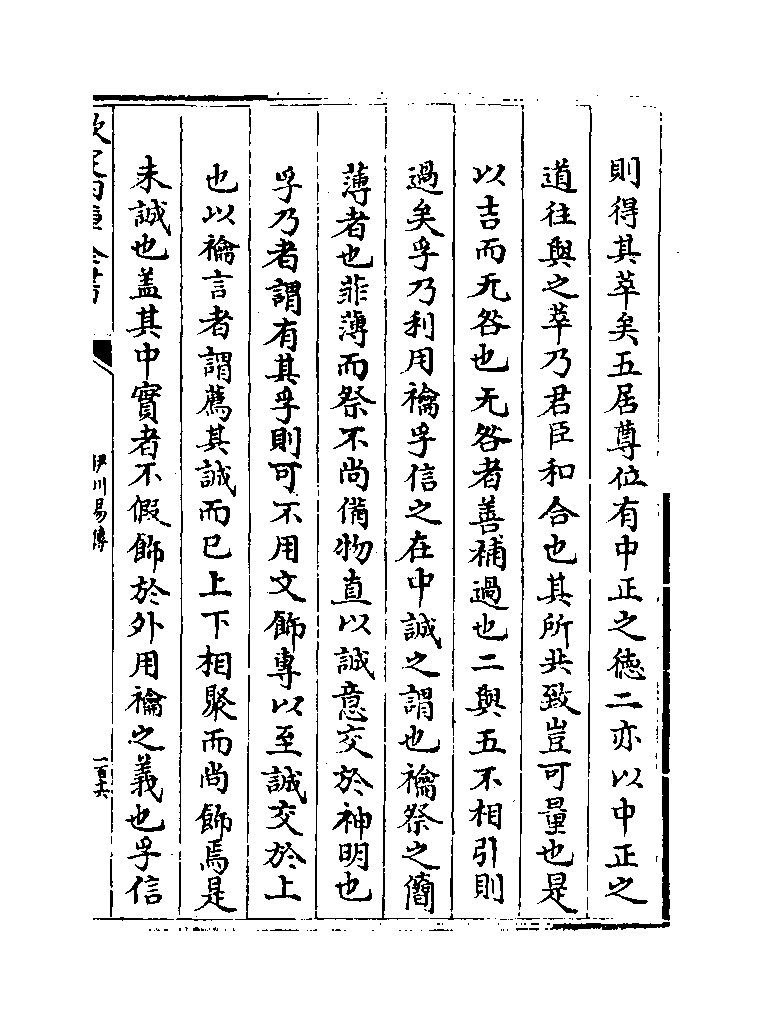 則得其萃矣五居尊位有中正之徳二亦以中正之
道往與之萃乃君臣和合也其所共致豈可量也是
以吉而无咎也无咎者善補過也二與五不相引則
過矣孚乃利用禴孚信之在中誠之謂也禴祭之簡
薄者也菲薄而祭不尚備物直以誠意交於神明也
孚乃者謂有其孚則可不用文飾專以至誠交於上
也以禴言者謂薦其誠而已上下相聚而尚飾焉是
未誠也盖其中實者不假飾於外用禴之義也孚信
伊川易傳
一百六